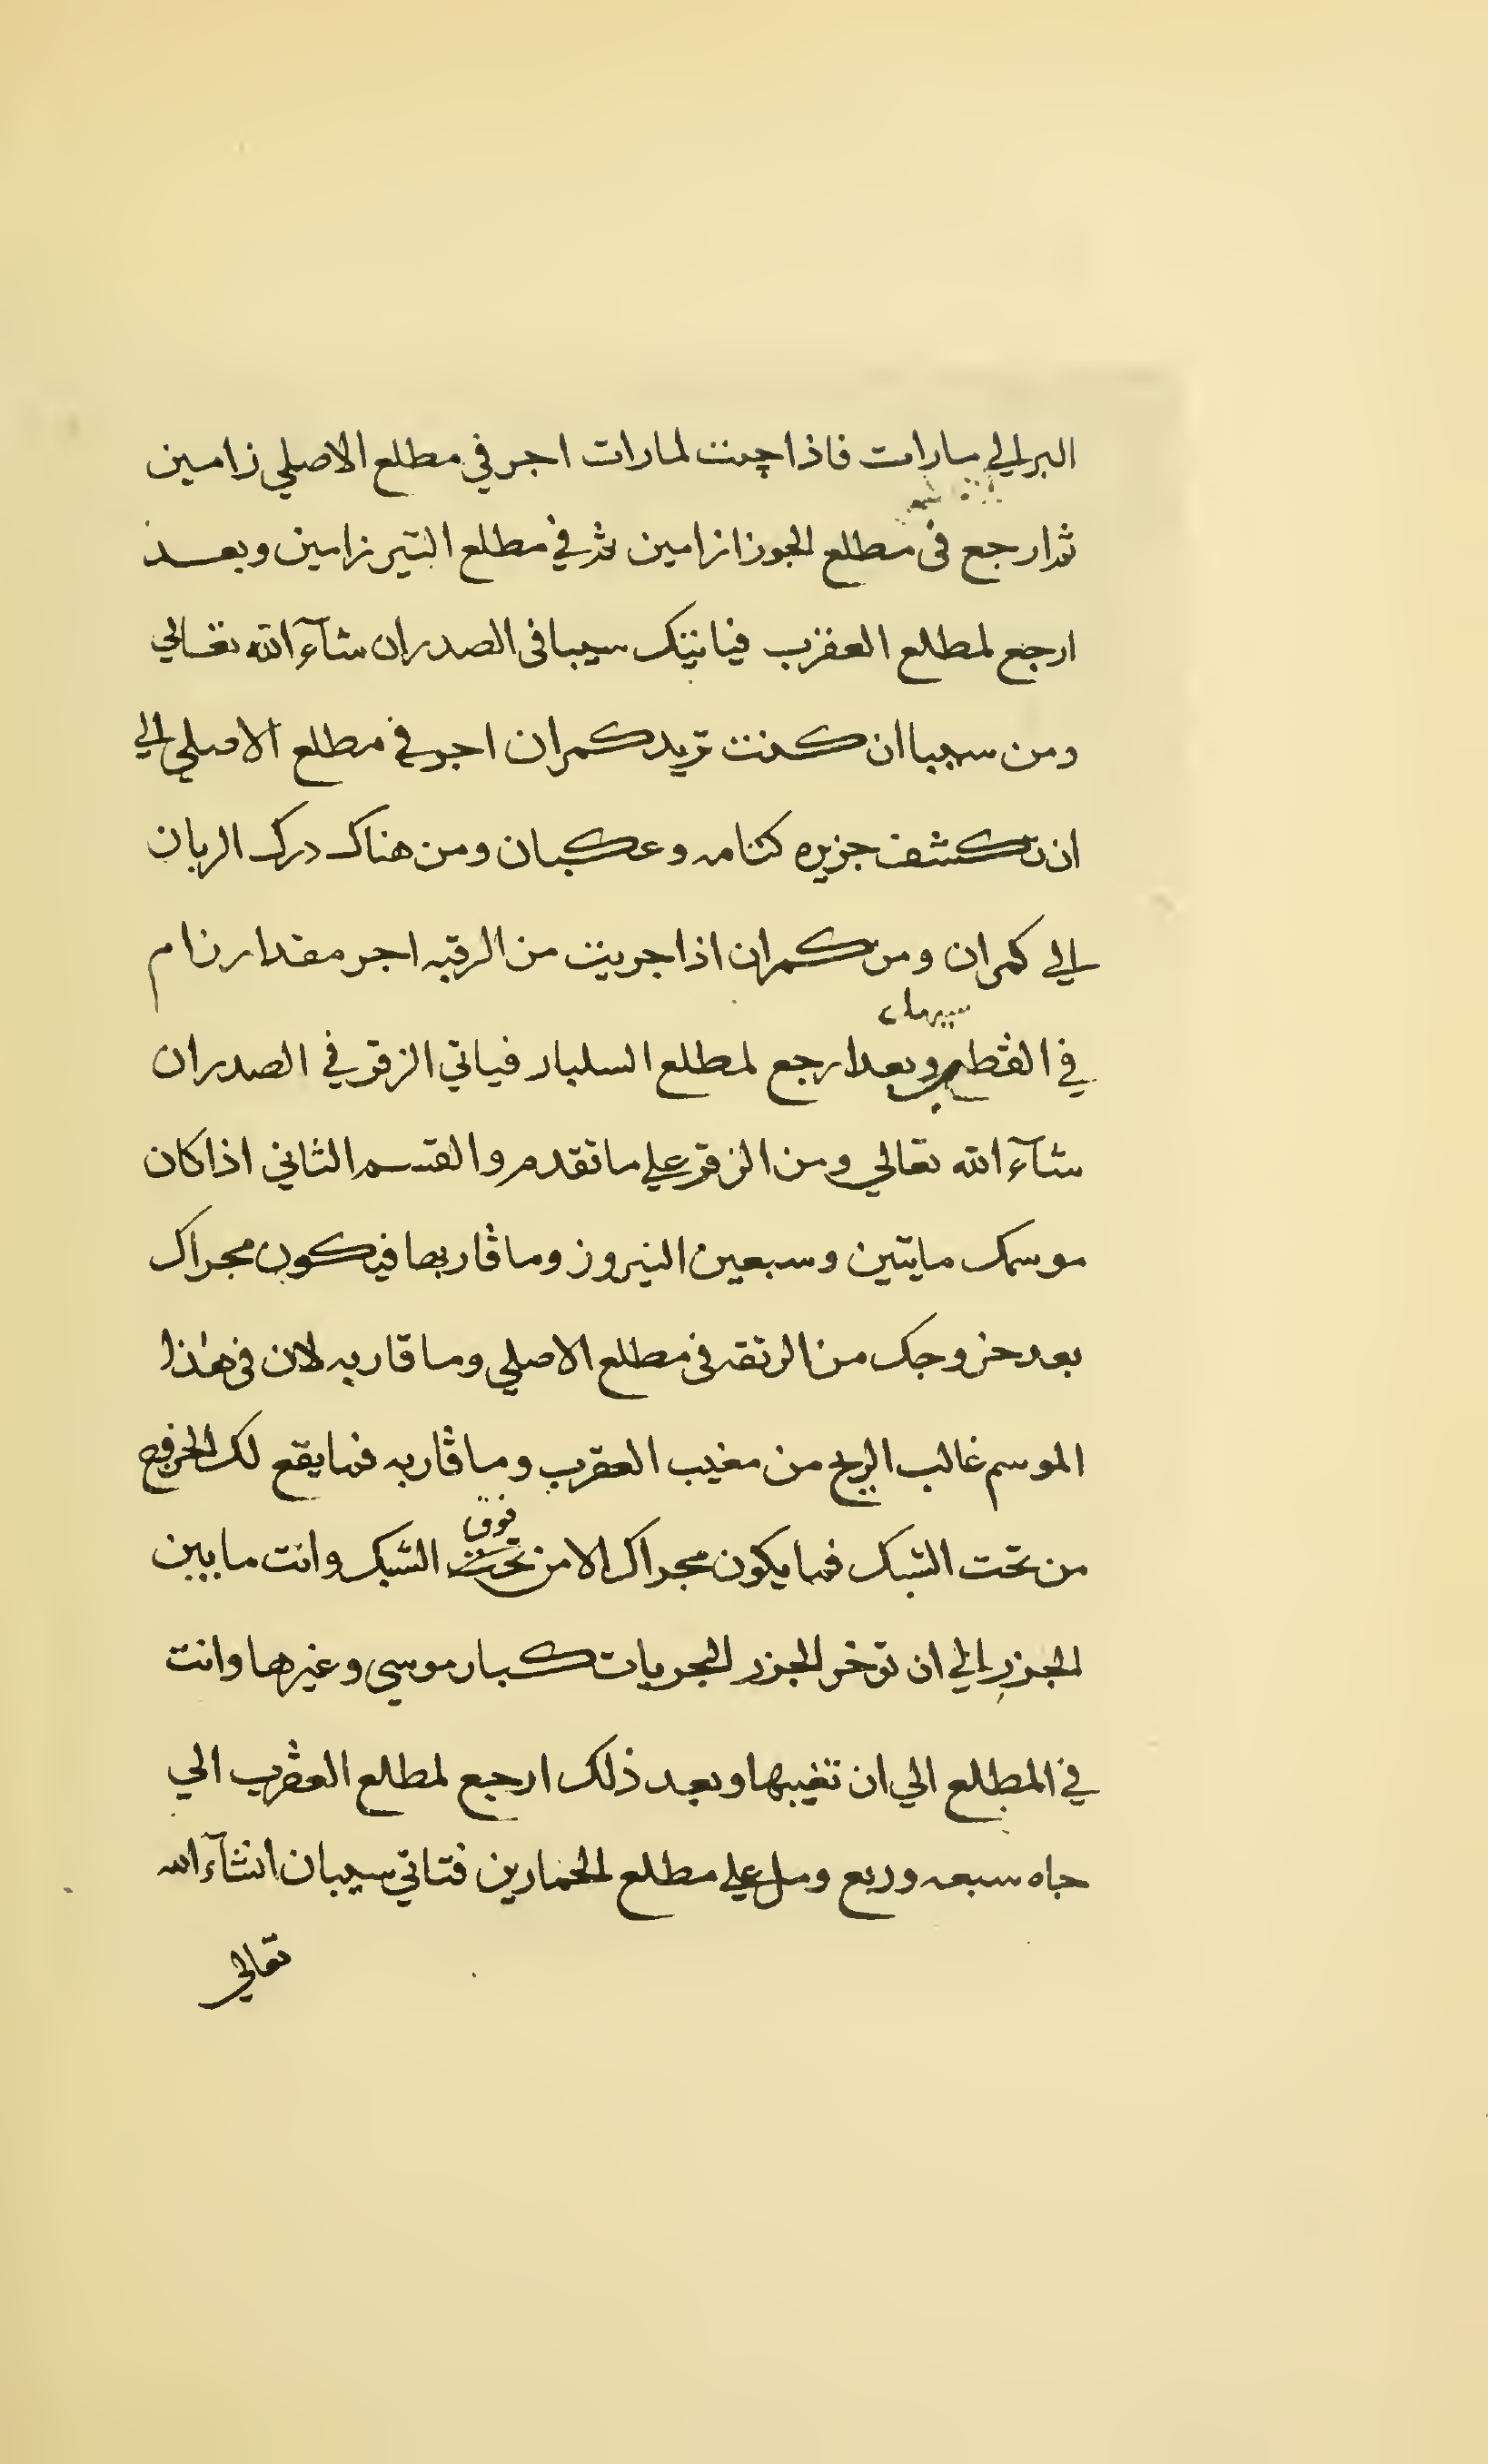 البر الي مارات فاذا جيت لمارات اجر في مطلع الاصلي زامين
ثم ارجع في مطلع الجوزا زامين ثم في مطلع التير زامين وبعد
ارجع لمطلع العقرب فياتيك سيبا في الصدر ان شآء الله تعالي
ومن سيبا ان كنت تريد كمران اجر في مطلع الاصلي الي
ان تكشف جزيره كتامه وعكبان ومن هناك درك الربان
الي كمران ومن كمران اذا جريت من الرقبه اجر مقدار زام
في القطب وبعد ارجع لمطلع السلبار فياتي الزقر في الصدر ان
شآء الله تعالي ومن الزقر علي ما تقدم والقسم الثاني اذا كان
موسمك مايتين وسبعين النيروز وما قاربها فيكون مجراك
بعد خروجك من الرتقه في مطلع الاصلي وما قاربه لان في هذا
الموسم غالب الريح من مغيب العقرب وما قاربه فما يقع لك
من تحت الشبك فما يكون مجراك الا من تحت فوق الشبك وانت ما بين
الجزر الي ان توخر الجزر البحريات كبار موسي وغيرها وانت
في المطلع الي ان تغيبها وبعد ذلك ارجع لمطلع العقرب الي
جاه سبعه وربع ومل علي مطلع الحمارين فتاتي سيبان انشآء الله
تعالي